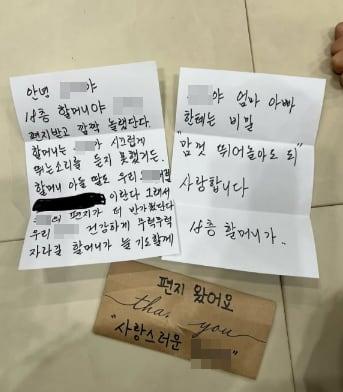 안녕 야
14층 할머니야
편지받고 깜짝 놀랬단다
할머니는 가 시끄럽게
뛰는소리를 듣지 못했거든.
할머니 아들 딸도 우리
이란다 그래서
의 편지가 더 반가웠단다
우리 건강하게 무럭무럭
자라길 할머니가 늘 기도할게
야 엄마 아빠
한테는 비밀
"맘껏 뛰어놀아도 되"
사랑합니다
14층 할머니가..
편지 왔어요
thank you
"사랑스러운